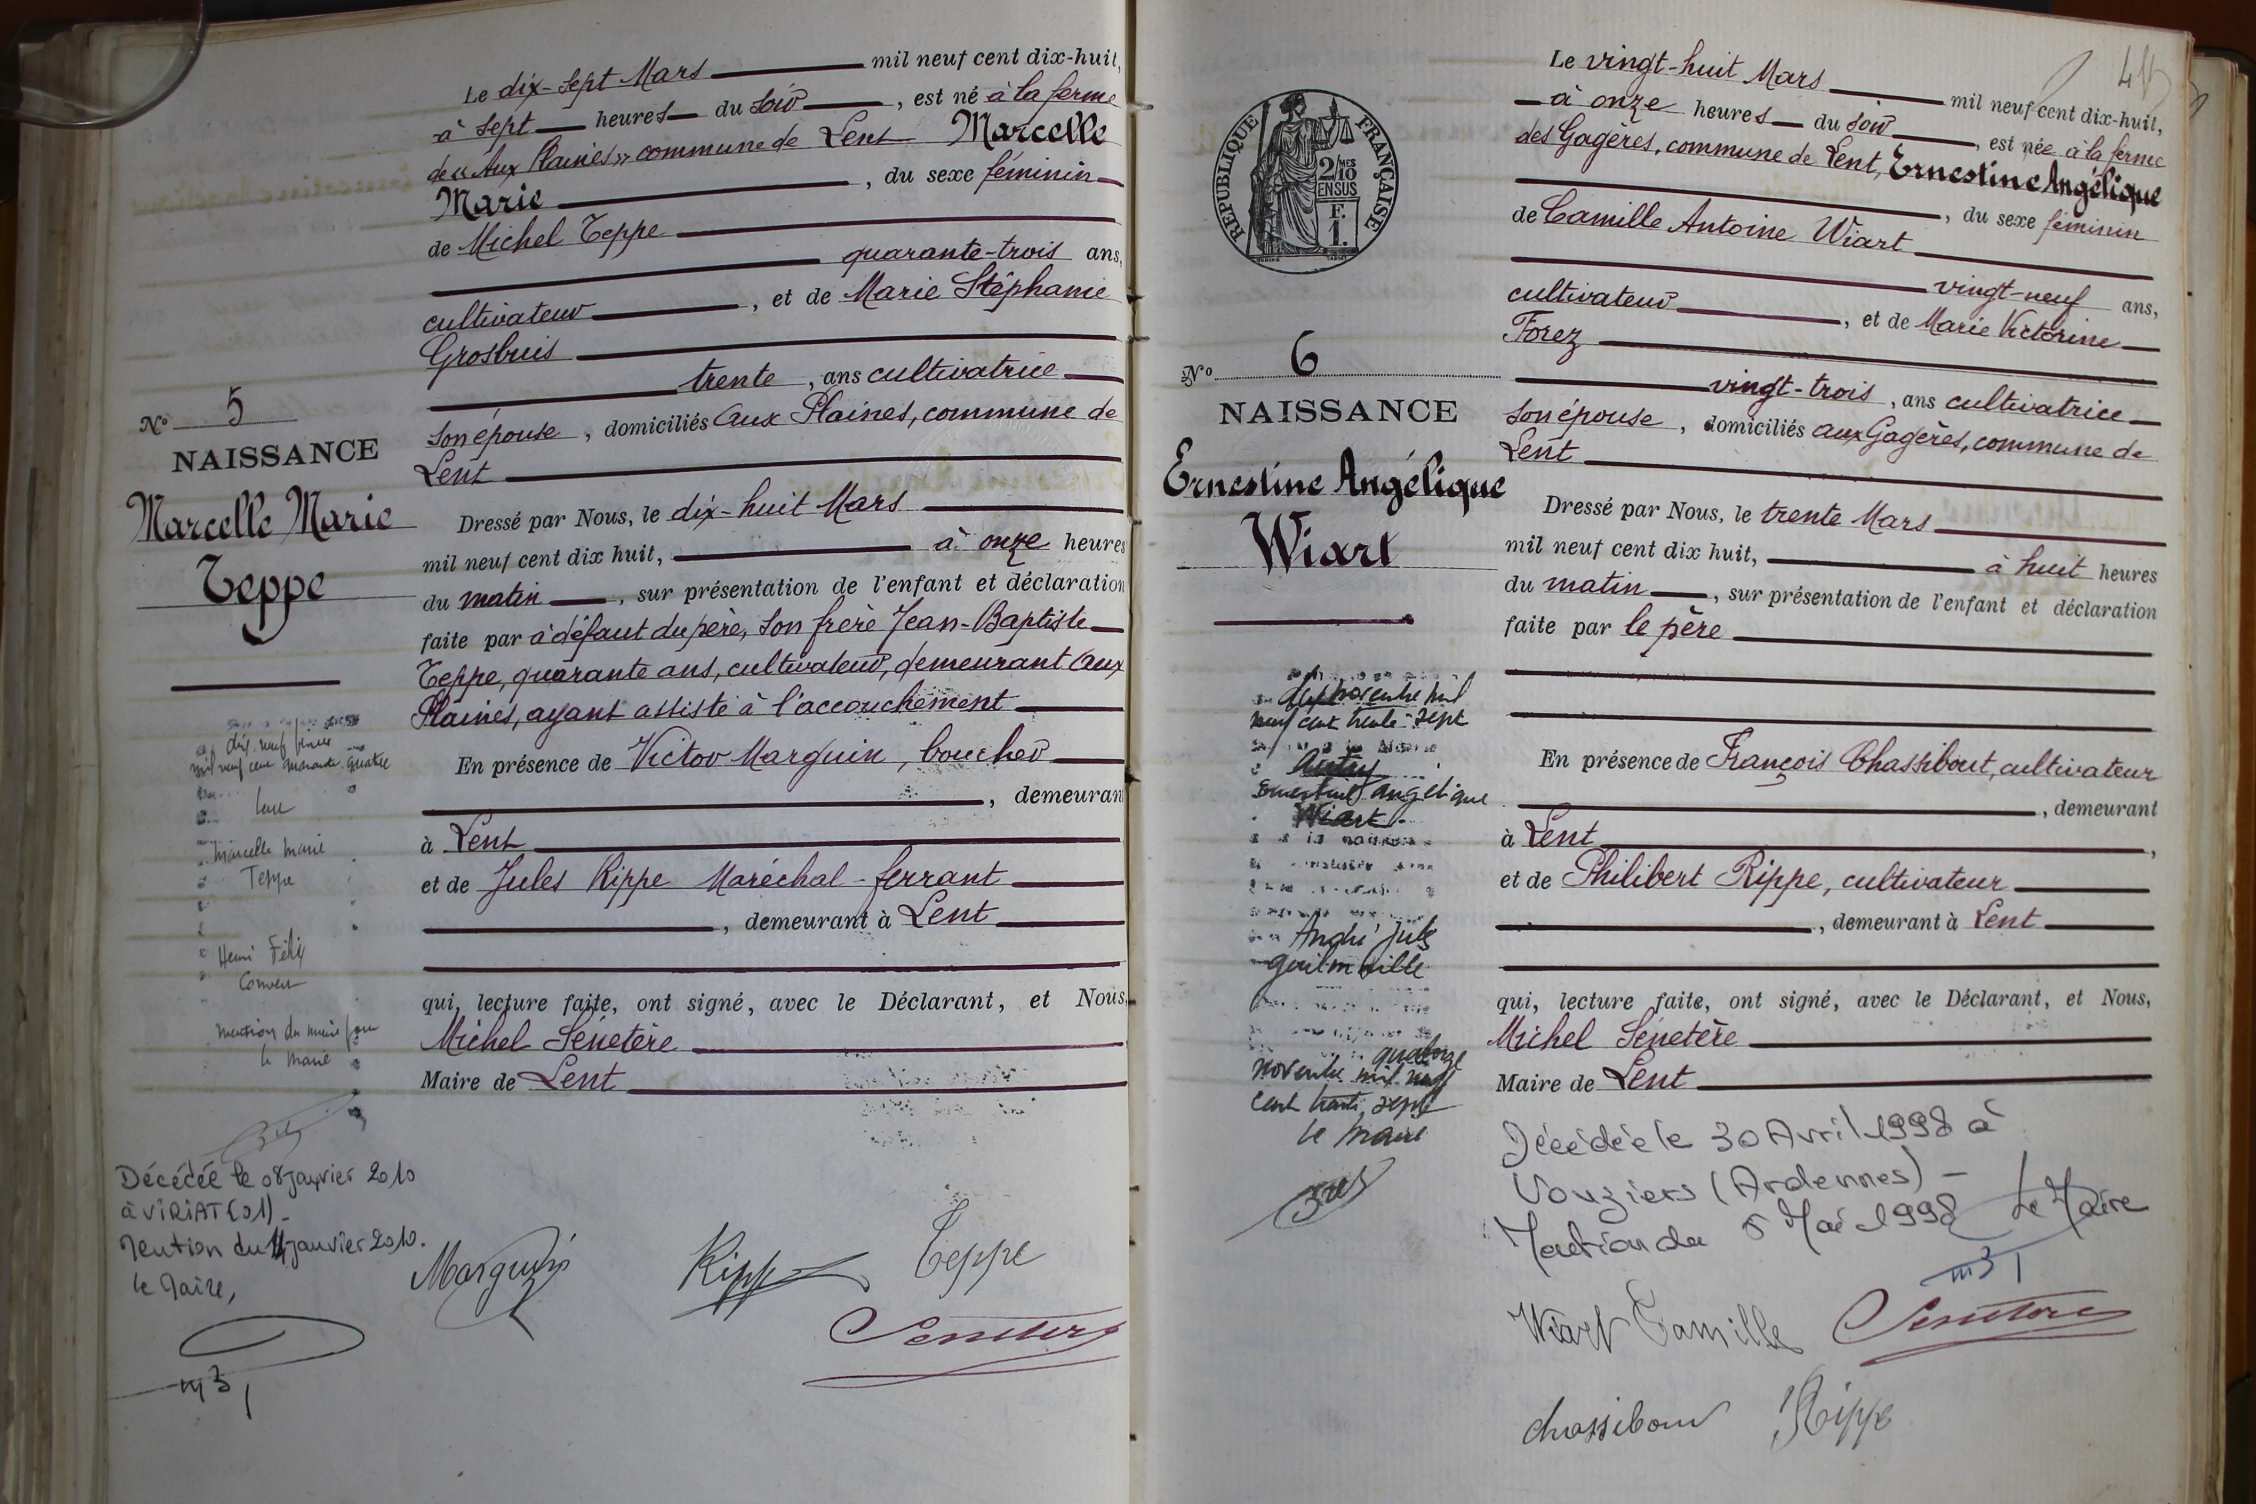 Le dix-sept Mars mil neuf cent dix-huit,
à sept heures du soir, est né à la ferme
de « Aux Plaines » commune de Lent Marcelle
Marie, du sexe féminin
de Michel Teppe
quarante-trois ans,
cultivateur, et de Marie Stéphanie
Grosbuis
trente, ans cultivatrice
son épouse, domiciliés aux Plaines, commune de
Lent
Nº 5
NAISSANCE
Marcelle Marie
Teppe
Dressé par Nous, le dix-huit Mars
mil neuf cent dix huit, à onze heures
du matin, sur présentation de l'enfant et déclaration
faite par à défaut du père, son frère Jean-Baptiste
Teppe, quarante ans, cultivateur, demeurant aux
Plaines, ayant assisté à l'accouchement
En présence de Victor Marguin, boucher
, demeurant
à Lent
et de Jules Rippe Maréchal-ferrant
, demeurant à Lent
qui, lecture faite, ont signé, avec le Déclarant, et Nous,
Michel Sénetère
Maire de Lent
dix neuf
mil neuf cent quatre
Marcelle Marie
Teppe
Henri Félix
Convert
mention du
le maire
Décédée le 08 janvier 2010
à VIRIAT (01)
Mention du 11 janvier 2010.
le Maire,
Marguin Rippe Teppe
Senetere
Le vingt-huit Mars mil neuf cent dix-huit,
à onze heures du soir, est née à la ferme
des Gagères, commune de Lent, Ernestine Angélique
, du sexe féminin
de Camille Antoine Wiart
vingt-neuf ans,
cultivateur, et de Marie Victorine
Forez
vingt-trois, ans cultivatrice
son épouse, domiciliés aux Gagères, commune de
Lent
RÉPUBLIQUE FRANÇAISE
2/10 MES
EN SUS
F.
1.
Nº 6
NAISSANCE
Ernestine Angélique
Wiart
Dressé par Nous, le trente Mars
mil neuf cent dix huit, à huit heures
du matin, sur présentation de l'enfant et déclaration
faite par le père
En présence de François Chassibout, cultivateur
, demeurant
à Lent,
et de Philibert Rippe, cultivateur
, demeurant à Lent
qui, lecture faite, ont signé, avec le Déclarant, et Nous,
Michel Sénetère
Maire de Lent
novembre mil
neuf cent trente-sept
Autry
Ernestine Angélique
Wiart
André Jules
Guilmaille
quatorze
novembre mil neuf
cent trente sept
le Maire
Décédée le 30 Avril 1998 à
Vouziers (Ardennes) -
Mention du 5 Mai 1998 Le Maire
Wiart Camille Senetere
chassibout Rippe